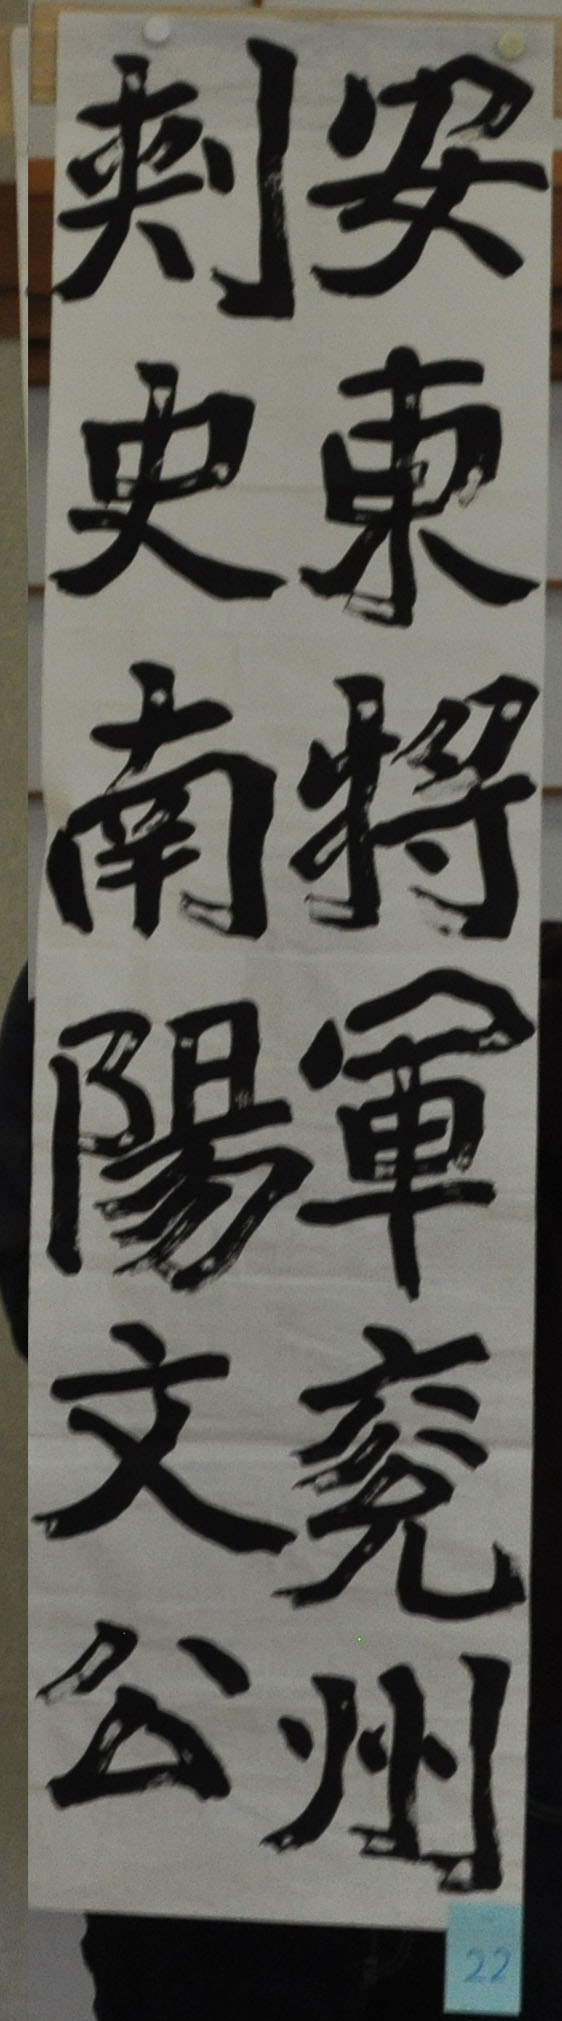 安東将軍兗州
刺史南陽文公
22